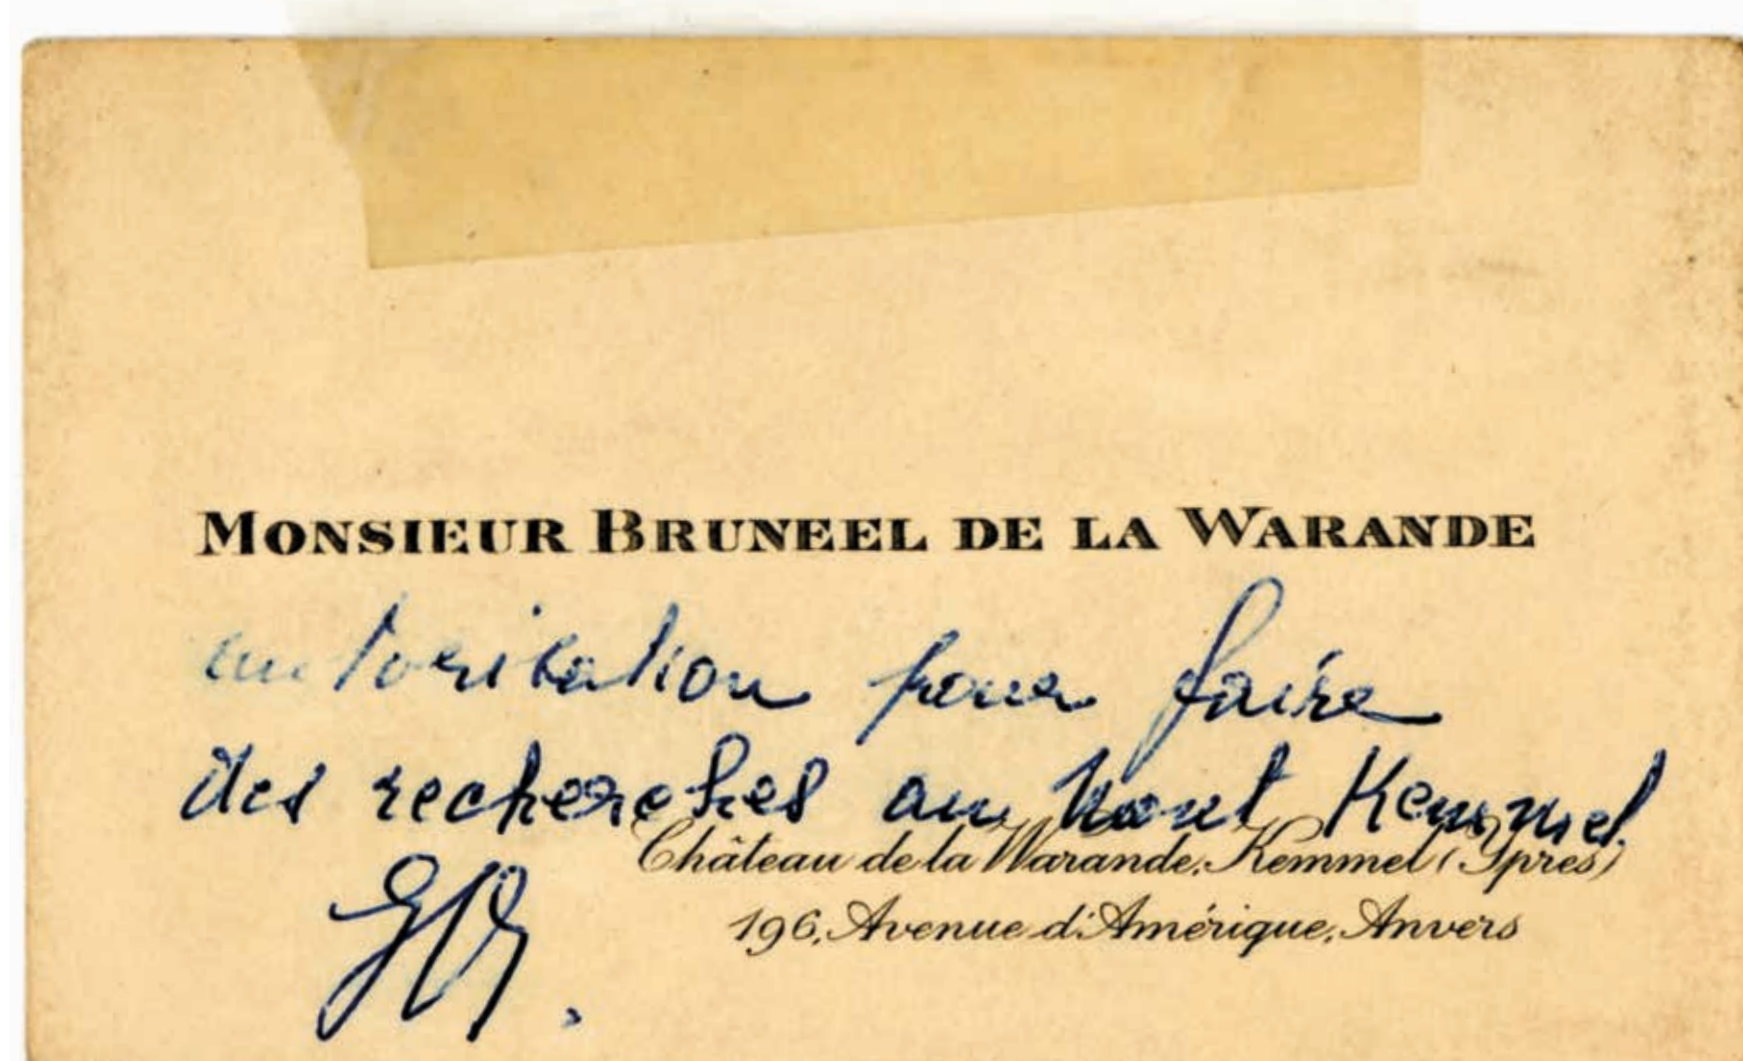 MONSIEUR BRUNEEL DE LA WARANDE
autorisation pour faire
des recherches au Mont Kemmel.
Château de la Warande, Kemmel (Ypres)
196, Avenue d'Amérique, Anvers